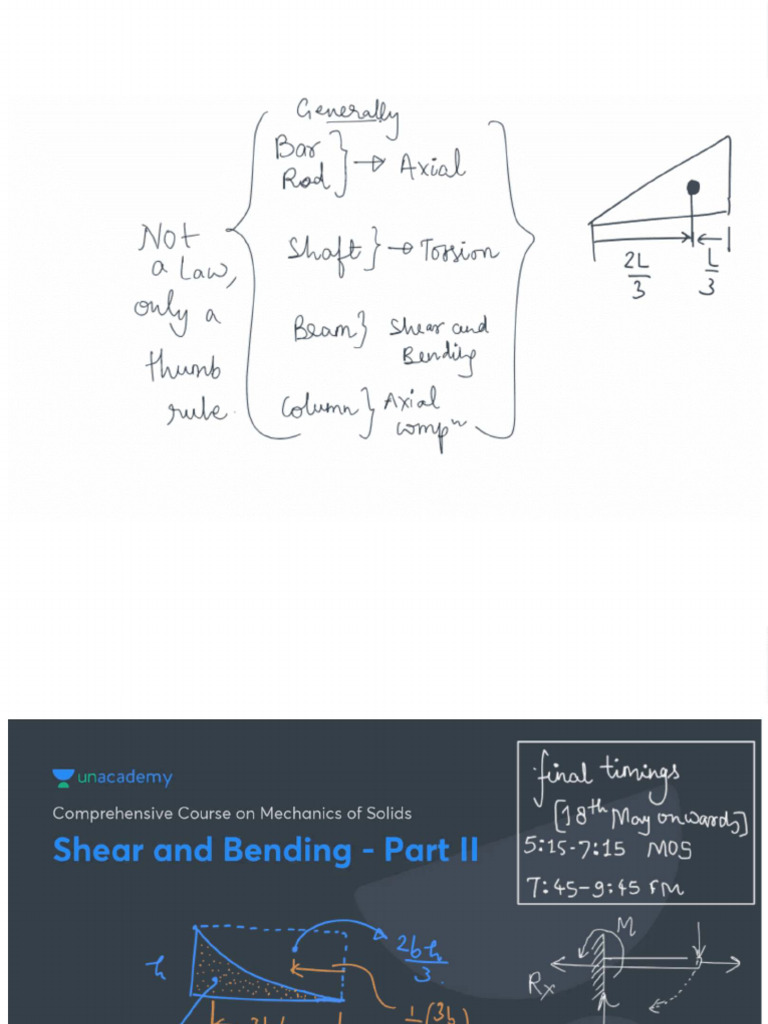 Generally
Bar
Rod
Axial
Not
a Law,
only a
thumb
rule.
Shaft
Torsion
Beam
Shear and
Bending
Column
Axial
compⁿ
2L
3
L
3
unacademy
Comprehensive Course on Mechanics of Solids
Shear and Bending - Part II
final timings
[18th May onwards]
5:15-7:15 MOS
7:45-9:45 FM
h
2bh
3
M
Rx